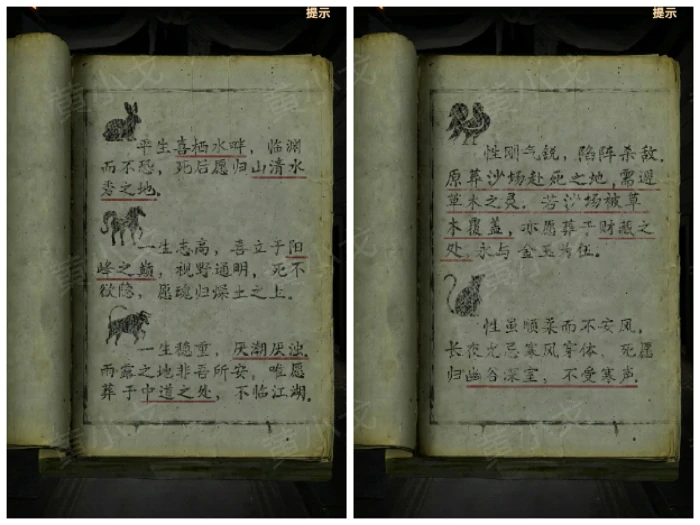 提示
平生喜栖水畔，临渊
而不恐，死后愿归山清水
秀之地。
一生志高，喜立于阳
峰之巅，视野通明，死不
欲隐，愿魂归燥土之上。
一生稳重，厌潮厌浊。
而露之地非吾所安，唯愿
葬于中道之处，不临江湖。
提示
性刚气锐，陷阵杀敌。
原葬沙场赴死之地，需避
草木之灵。若沙场被草
木覆盖，亦愿葬于财蔽之
处，永与金玉为伍。
性虽顺柔而不安风，
长夜尤忌寒风穿体，死愿
归幽谷深室，不受寒声。
黄小戈
黄小戈
黄小戈
黄小戈